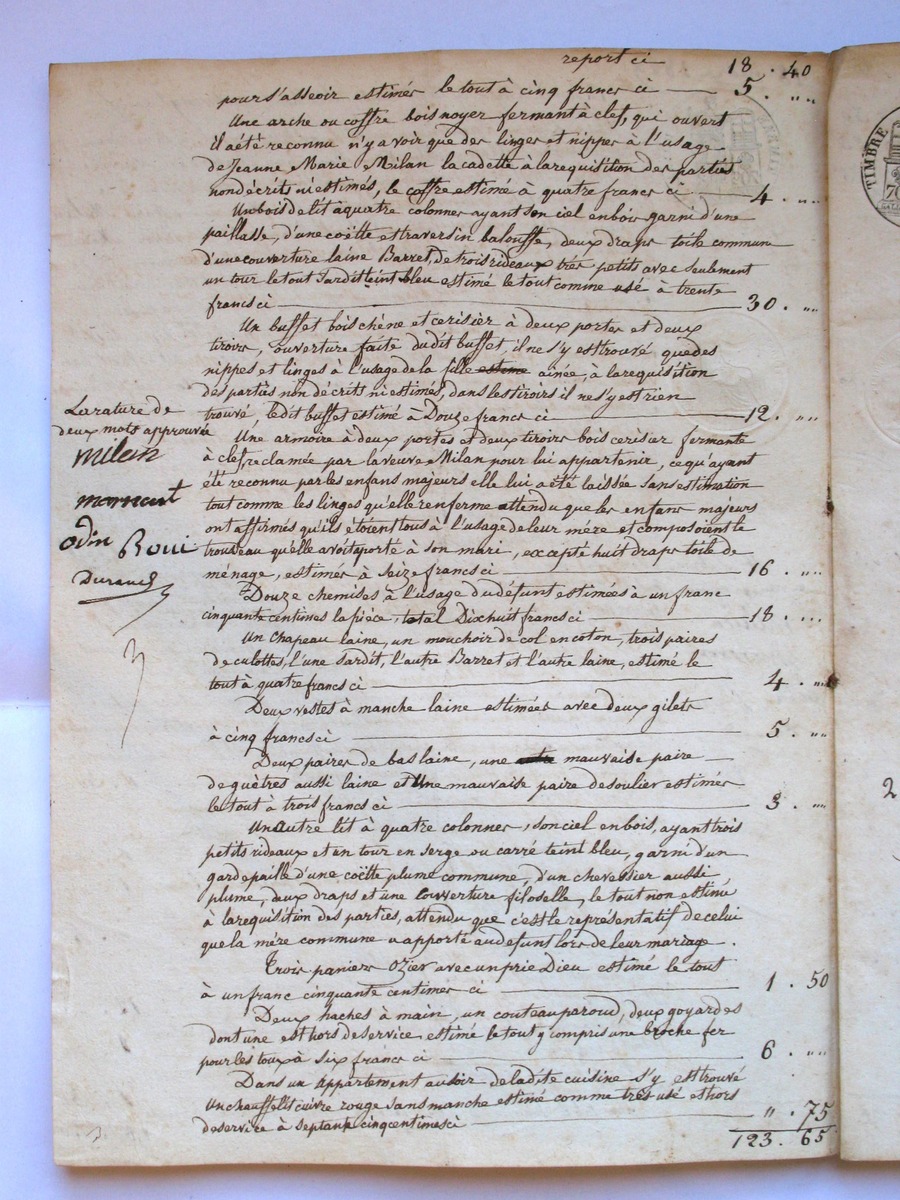 report ci 18 . 40
pour s'asseoir estimés le tout à cinq francs ci 5 . ""
Une arche ou coffre bois noyer fermant à clef, qui ouvert
il a été reconnu n'y avoir que des linges et nippes à l'usage
de Jeanne Marie Milan la cadette à la requisition des parties
non décrits ni estimés, le coffre estimé à quatre francs ci 4 . ""
Un bois de lit à quatre colonnes ayant son ciel en bois garni d'une
paillasse, d'une coëtte et traversin balouffe, deux draps toile commun
d'une couverture laine Barret, de trois rideaux très petits avec seulement
un tour le tout sardit teint bleu estimé le tout comme usé à trente
francs ci 30 . ""
Un buffet bois chêne et cerisier à deux portes et deux
tiroirs, ouverture faite dudit buffet, il ne s'y est trouvé que des
nippes et linges à l'usage de la fille estimé ainée, à la requisition
des parties non décrits ni estimés, dans les tiroirs il ne s'y est rien
trouvé, ledit buffet estimé à Douze francs ci 12. ""
Une armoire à deux portes et deux tiroirs bois cerisier fermante
à clef reclamée par la veuve Milan pour lui appartenir, ce qu'ayant
été reconnu par les enfans majeurs elle lui a été laissée sans estimation
tout comme les linges qu'elle renferme attendu que les enfans majeurs
ont affirmés qu'ils étoient tous à l'usage de leur mère et composoient le
trousseau qu'elle avoit aporté à son mari, excepté huit draps toile de
ménage, estimés à seize francs ci 16 . ""
Douze chemises à l'usage du défunt estimées à un franc
cinquante centimes la pièce, total Dix huit francs ci 18 . ""
Un chapeau laine, un mouchoir de col en coton, trois paires
de culottes, l'une sardit, l'autre Barret et l'autre laine, estimé le
tout à quatre francs ci 4 . ""
Deux vestes à manche laine estimées avec deux gilets
à cinq francs ci 5 . ""
Deux paires de bas laine, une autre mauvaise paire
de guètres aussi laine et Une mauvaise paire de soulier estimés
le tout à trois francs ci 3 . ""
Un autre lit à quatre colonnes, son ciel en bois, ayant trois
petits rideaux et un tour en serge ou carré teint bleu, garni d'un
gardepaille d'une coëtte plume commune, d'un chevessier aussi
plume, deux draps et une couverture filoselle, le tout non estimé
à la requisition des parties, attendu que c'est le représentatif de celui
que la mère commune a apporté au défunt lors de leur mariage.
Trois paniers Ozier avec un prie Dieu estimé le tout
à un franc cinquante centimes ci 1 . 50
Deux haches à main, un couteau paroud, deux goyardes
dont une est hors de service, estimé le tout y compris une broche fer
pour les toux à six francs ci 6 . ""
Dans un appartement au soir de ladite cuisine s'y est trouvé
Un chauffelit cuivre rouge sans manche estimé comme très usé et hors
de service à septante cinq centimes ci " . 75
123 . 65
La rature de
deux mots approuvée
Milan
mornant
odin Boui
Durand
TIMBRE
2